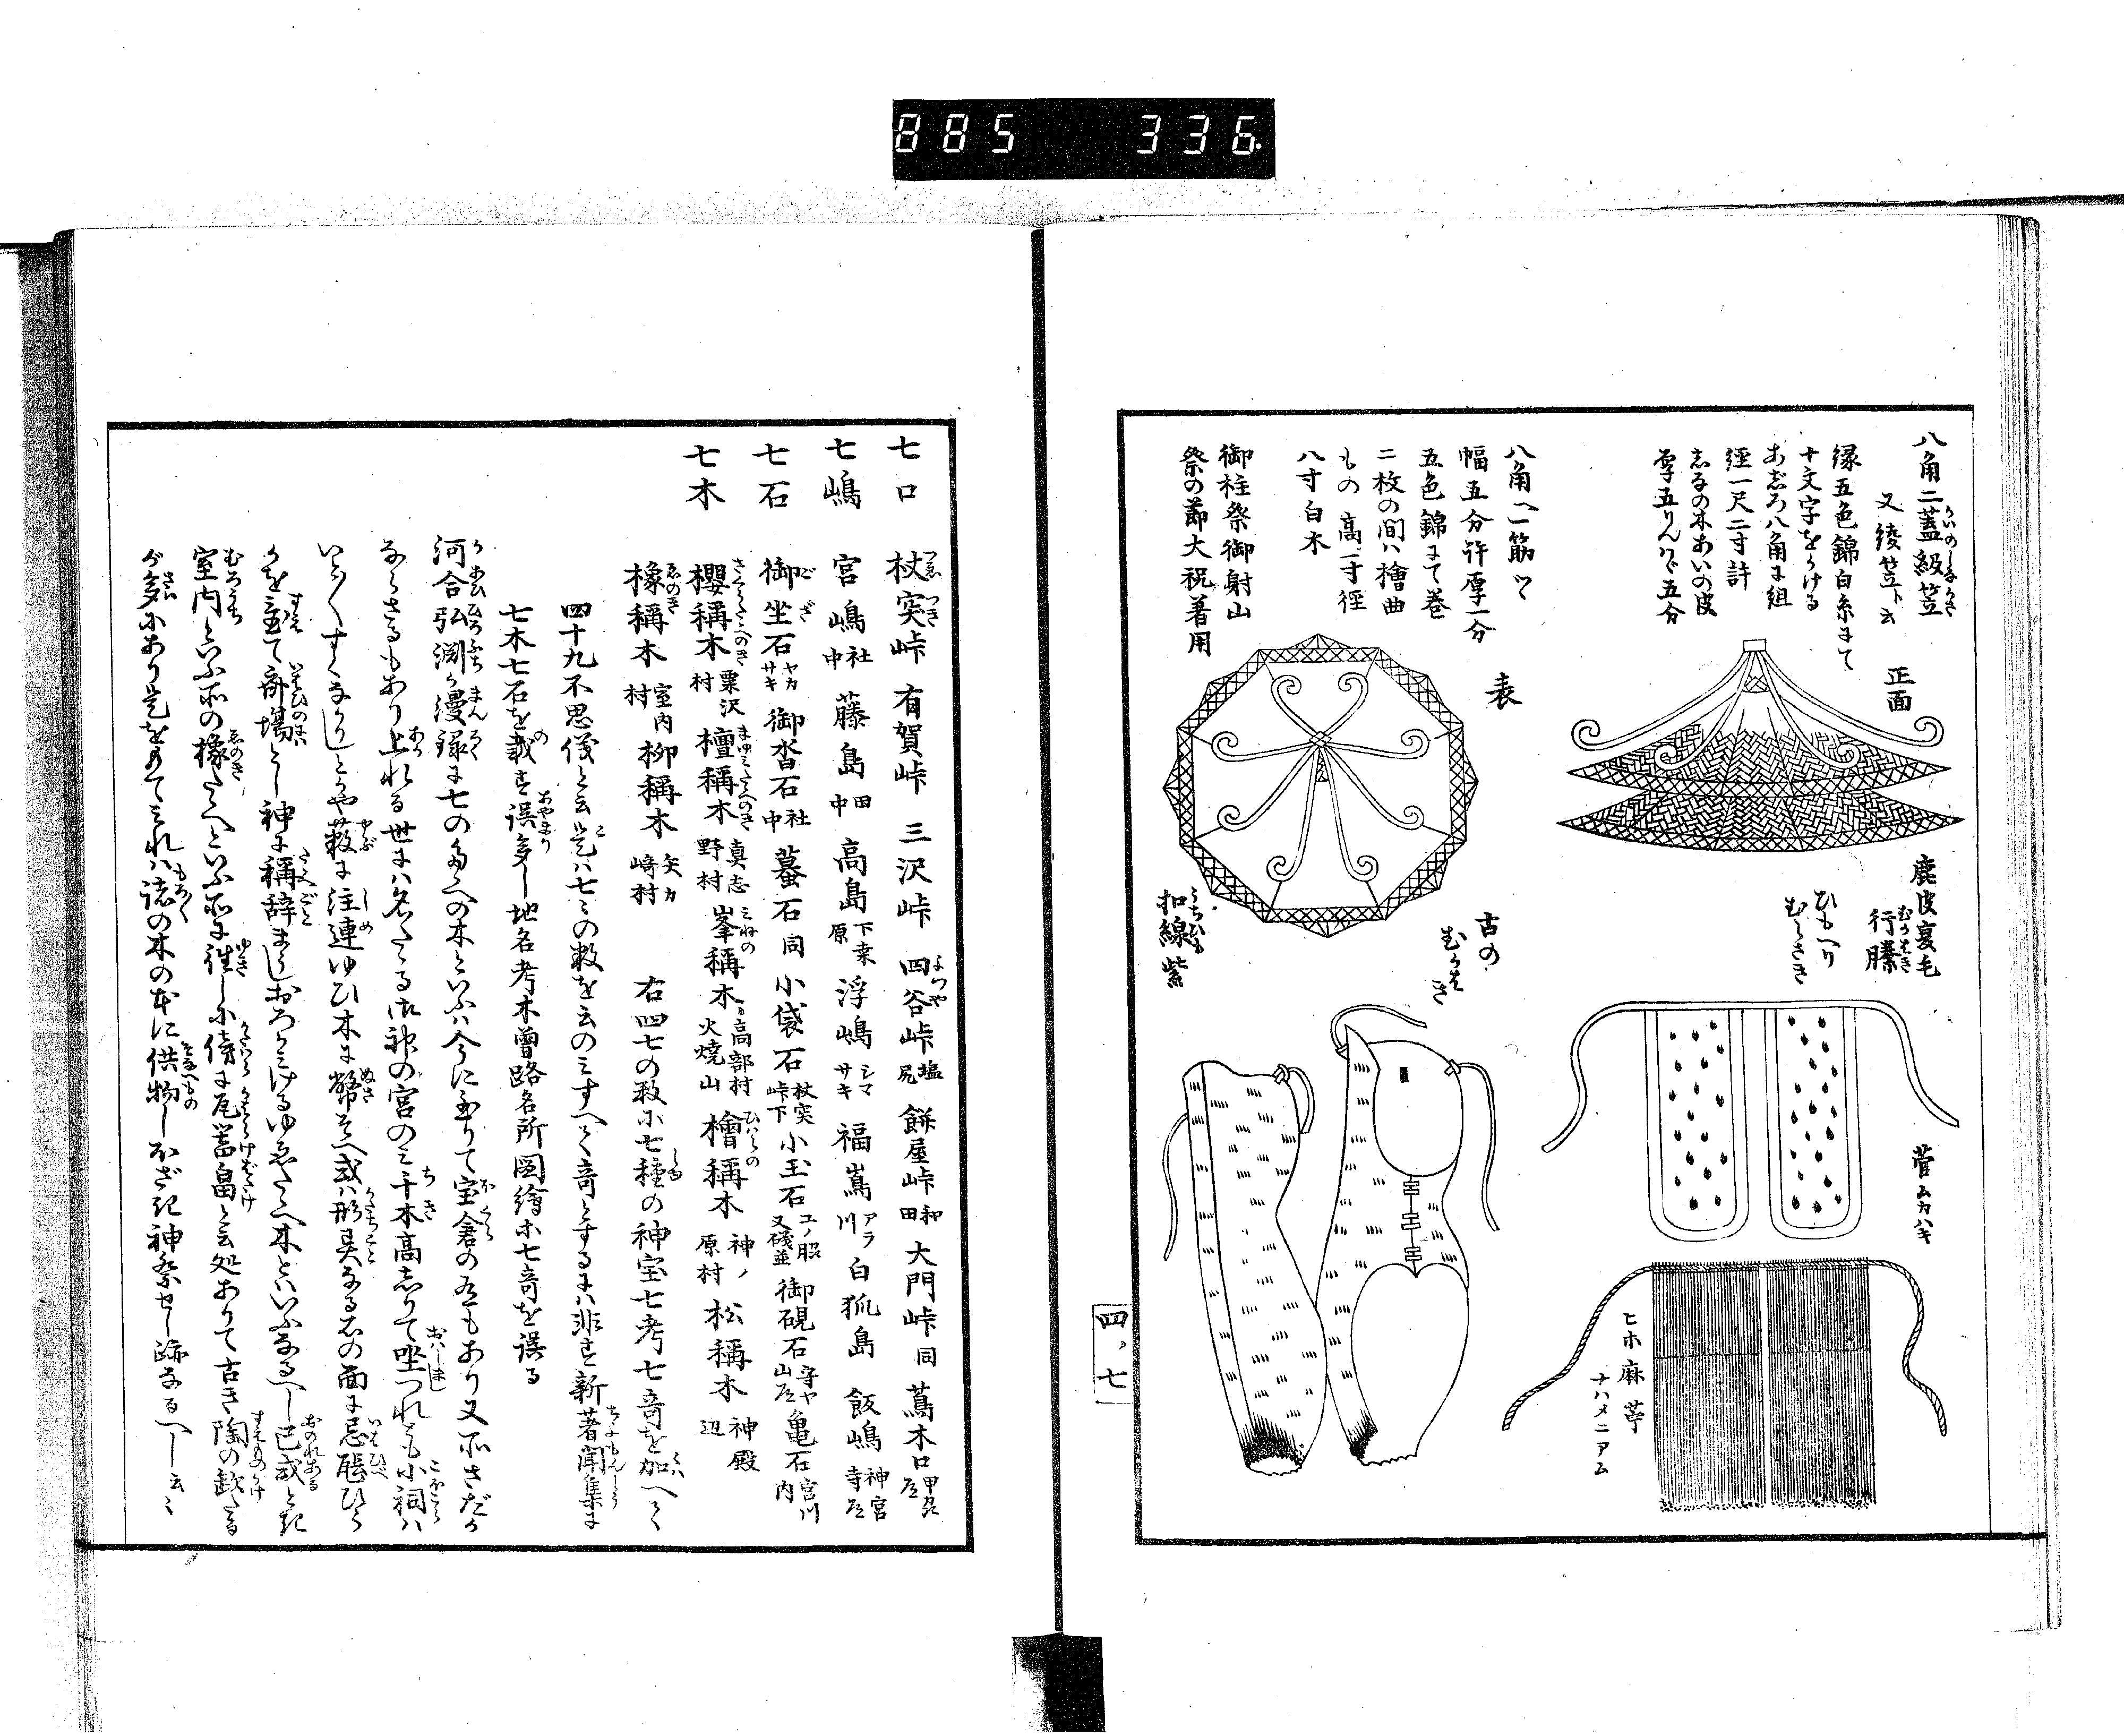 885 336
八角二蓋級笠
又綾笠ト云
縁五色錦白糸にて
十文字をかける
あじろ八角に組
径一尺二寸許
しなの木あいの皮
厚五りんハゞ五分
正面
八角へ一筋ツヽ
幅五分許厚一分
五色錦にて巻
二枚の間ハ檜曲
もの高一寸径
八寸白木
御柱祭御射山
祭の節大祝着用
表
扣線紫
うちひも
鹿皮夏毛
行縢
むかはき
ひもへり
むらさき
古の
むかはき
菅ムカハキ
ヒホ麻苧
ナハメニアム
四ノ七
七口 杖突峠 有賀峠 三沢峠 四谷峠塩尻 餅屋峠和田 大門峠同 蔦木口
七嶋 宮嶋社中 藤島田中 高島下桑原 浮嶋シマサキ 福嶌アラ川 白狐島 飯嶋神宮寺
七石 御坐石ヤカサキ 御沓石社中 蟇石同 小袋石杖突峠下 小玉石 御硯石守ヤ山 亀石宮川内
七木 櫻稱木粟沢村 檀稱木真志野村 峯稱木高部村火焼山 檜稱木神ノ原村 松稱木神殿辺
橡稱木室内村 柳稱木矢カ﨑村 右四七の数に七種の神宝七考七竒を加へて
四十九不思儀と云是ハ七々の数を云のミすへて竒とするにハ非す新著聞集に
七木七石を載す誤多し地名考木曽路名所圖繪に七竒を誤る
河合弘渕か漫録に七のたゝへの木といふハ今に至りて宝倉の有もあり又所さだか
ならさるもあり上れる世にハ名たゝる御神の宮のミ千木高しりて坐つれとも小祠ハ
いと〱すくなかりしとかや藪に注連ゆひ木に幣そへ或ハ形異なる石の面に忌瓮ひら
かを立て斎場とし神に稱辞まうしおろかミけるゆゑたゝへ木とハいふなるへし已或とき
室内といふ所の橡たゝへといふ所に往しに傍に瓦畠と云処ありて古き陶の欠たる
が多にあり是をもてミれハ諸の木の本に供物しおざき神祭せし跡なるへし云々